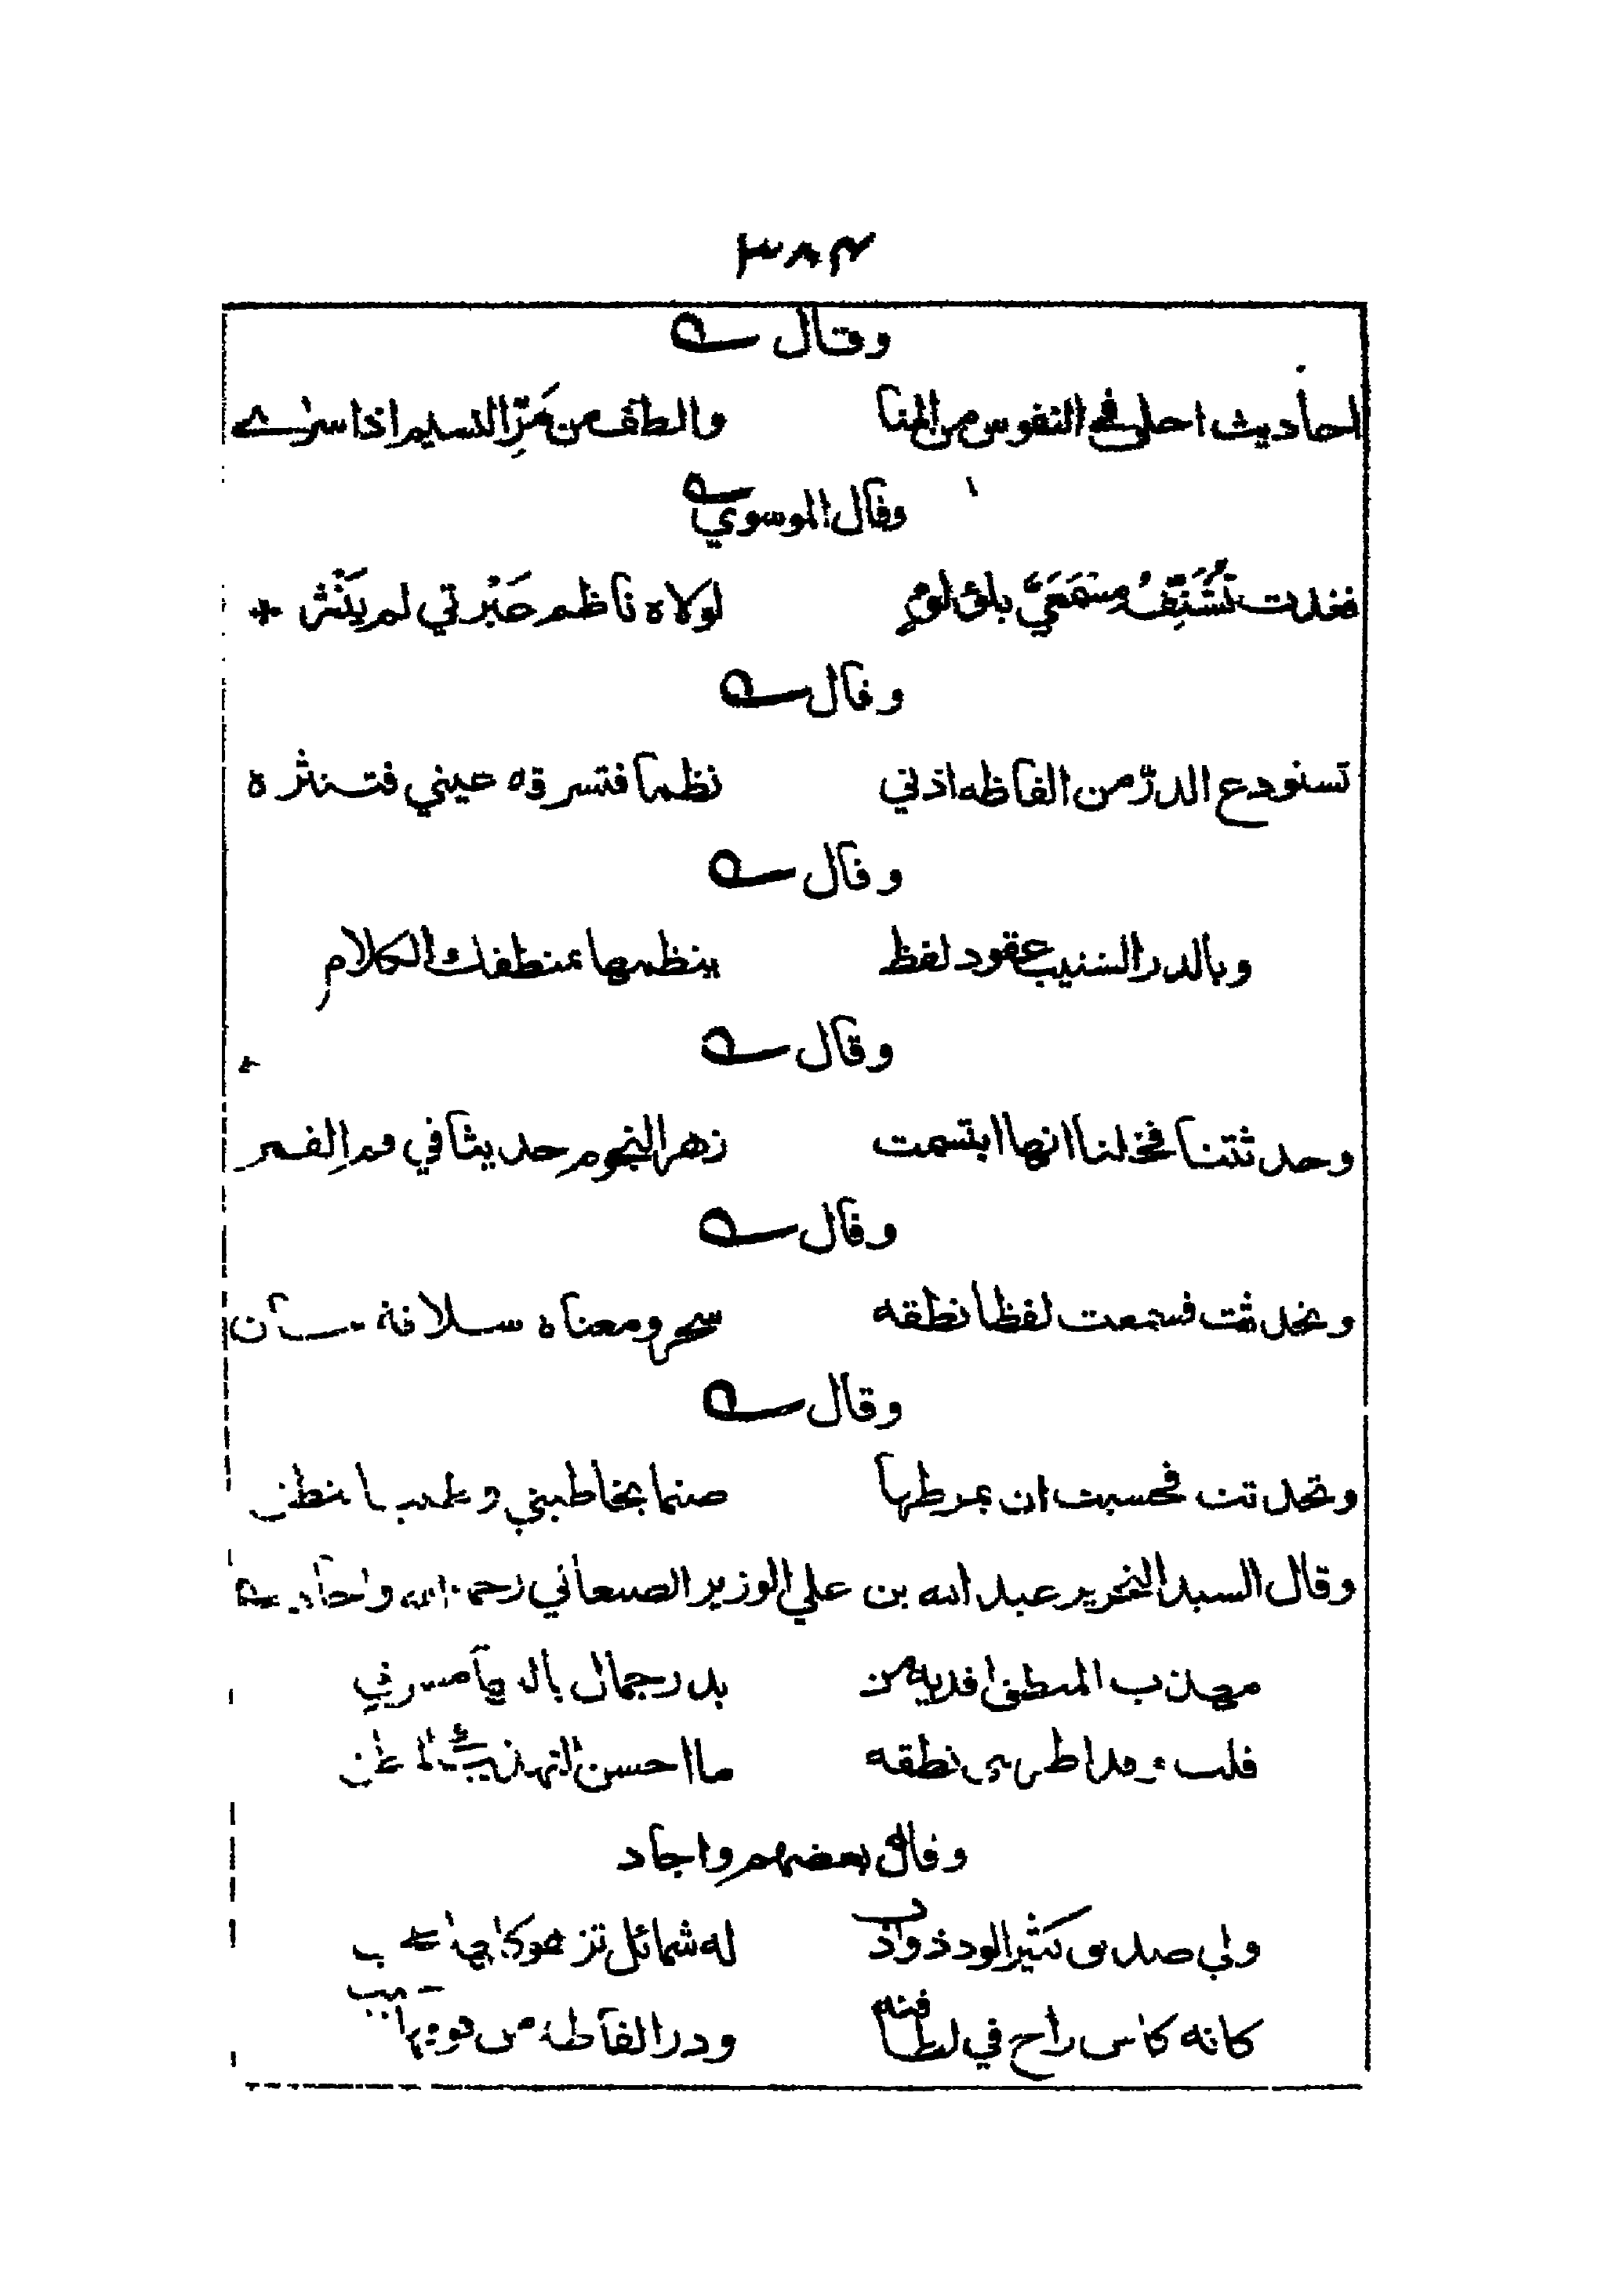 ٣٨٤
وقال
احاديث احلى في النفوس من المنا والطف من مَرِّ النسيم اذا سرى
وقال الموسوي
فغدت تُشَنِّفُ مِسْمَعَيَّ بلؤلؤٍ لولاه ناظم عَبْرتي لم يَنْثر
وقال
تستودع الدرّ من الفاظه اذني نظما فتسرقه عيني فتنثره
وقال
وبالدر الشنيب عقود لفظ ينظمها بمنطقك الكلام
وقال
وحدثتنا فخلنا انها ابتسمت زهر النجوم حديثا في فم القمر
وقال
وتحدثت فسمعت لفظا نطقه سحر ومعناه سلافة
وقال
وتحدثت فحسبت ان بمرطها صنما يخاطبني
وقال السيد النحرير عبد الله بن علي الوزير الصنعاني رحمه الله واجاد
مهذب المنطق افديه من بدر جمال
قلت وقد نطقه ما احسن التهذيب
وقال بعضهم واجاد
ولي صديق كثير الود ذو ادب له شمائل تزهو
كانه كاس راح في لطافته ودر الفاظه من فوقها